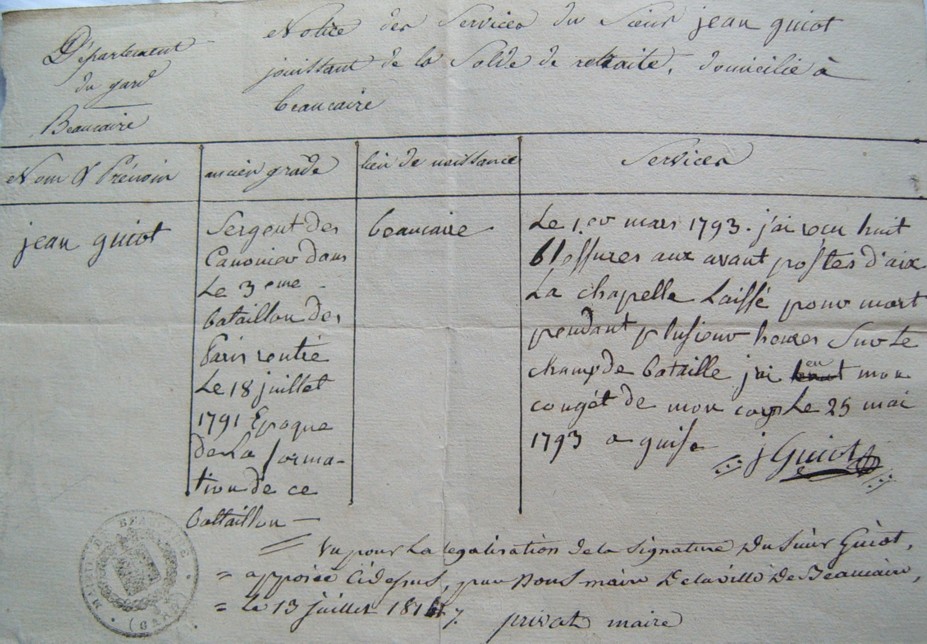 Département
du gard
Beaucaire
Notice des Services du Sieur jean guiot
jouissant de la Solde de retraite, domicilié à
beaucaire
Nom & Prénom
ancien grade
lieu de naissance
Services
jean guiot
Sergent des
Canonier dans
Le 3 eme
bataillon des
Paris rentré
Le 18 juillet
1791 Epoque
de La forma-
tion de ce
battaillon
beaucaire
Le 1.er mars 1793. j'ai recu huit
blessures aux avant postes d'aix
La chapelle Laissé pour mort
pendant plusieur houres Sur Le
champ de bataille j'ai eu mon
congét de mon corp Le 25 mai
1793 a guise
j Guiot
Vu pour La legalisation de la signature Du Sieur Guiot,
= apposée Cidessus, par Nous maire De la ville De Beaucaire,
= Le 13 juillet
privat maire
MAIRIE DE BEAUCAIRE
(GARD)